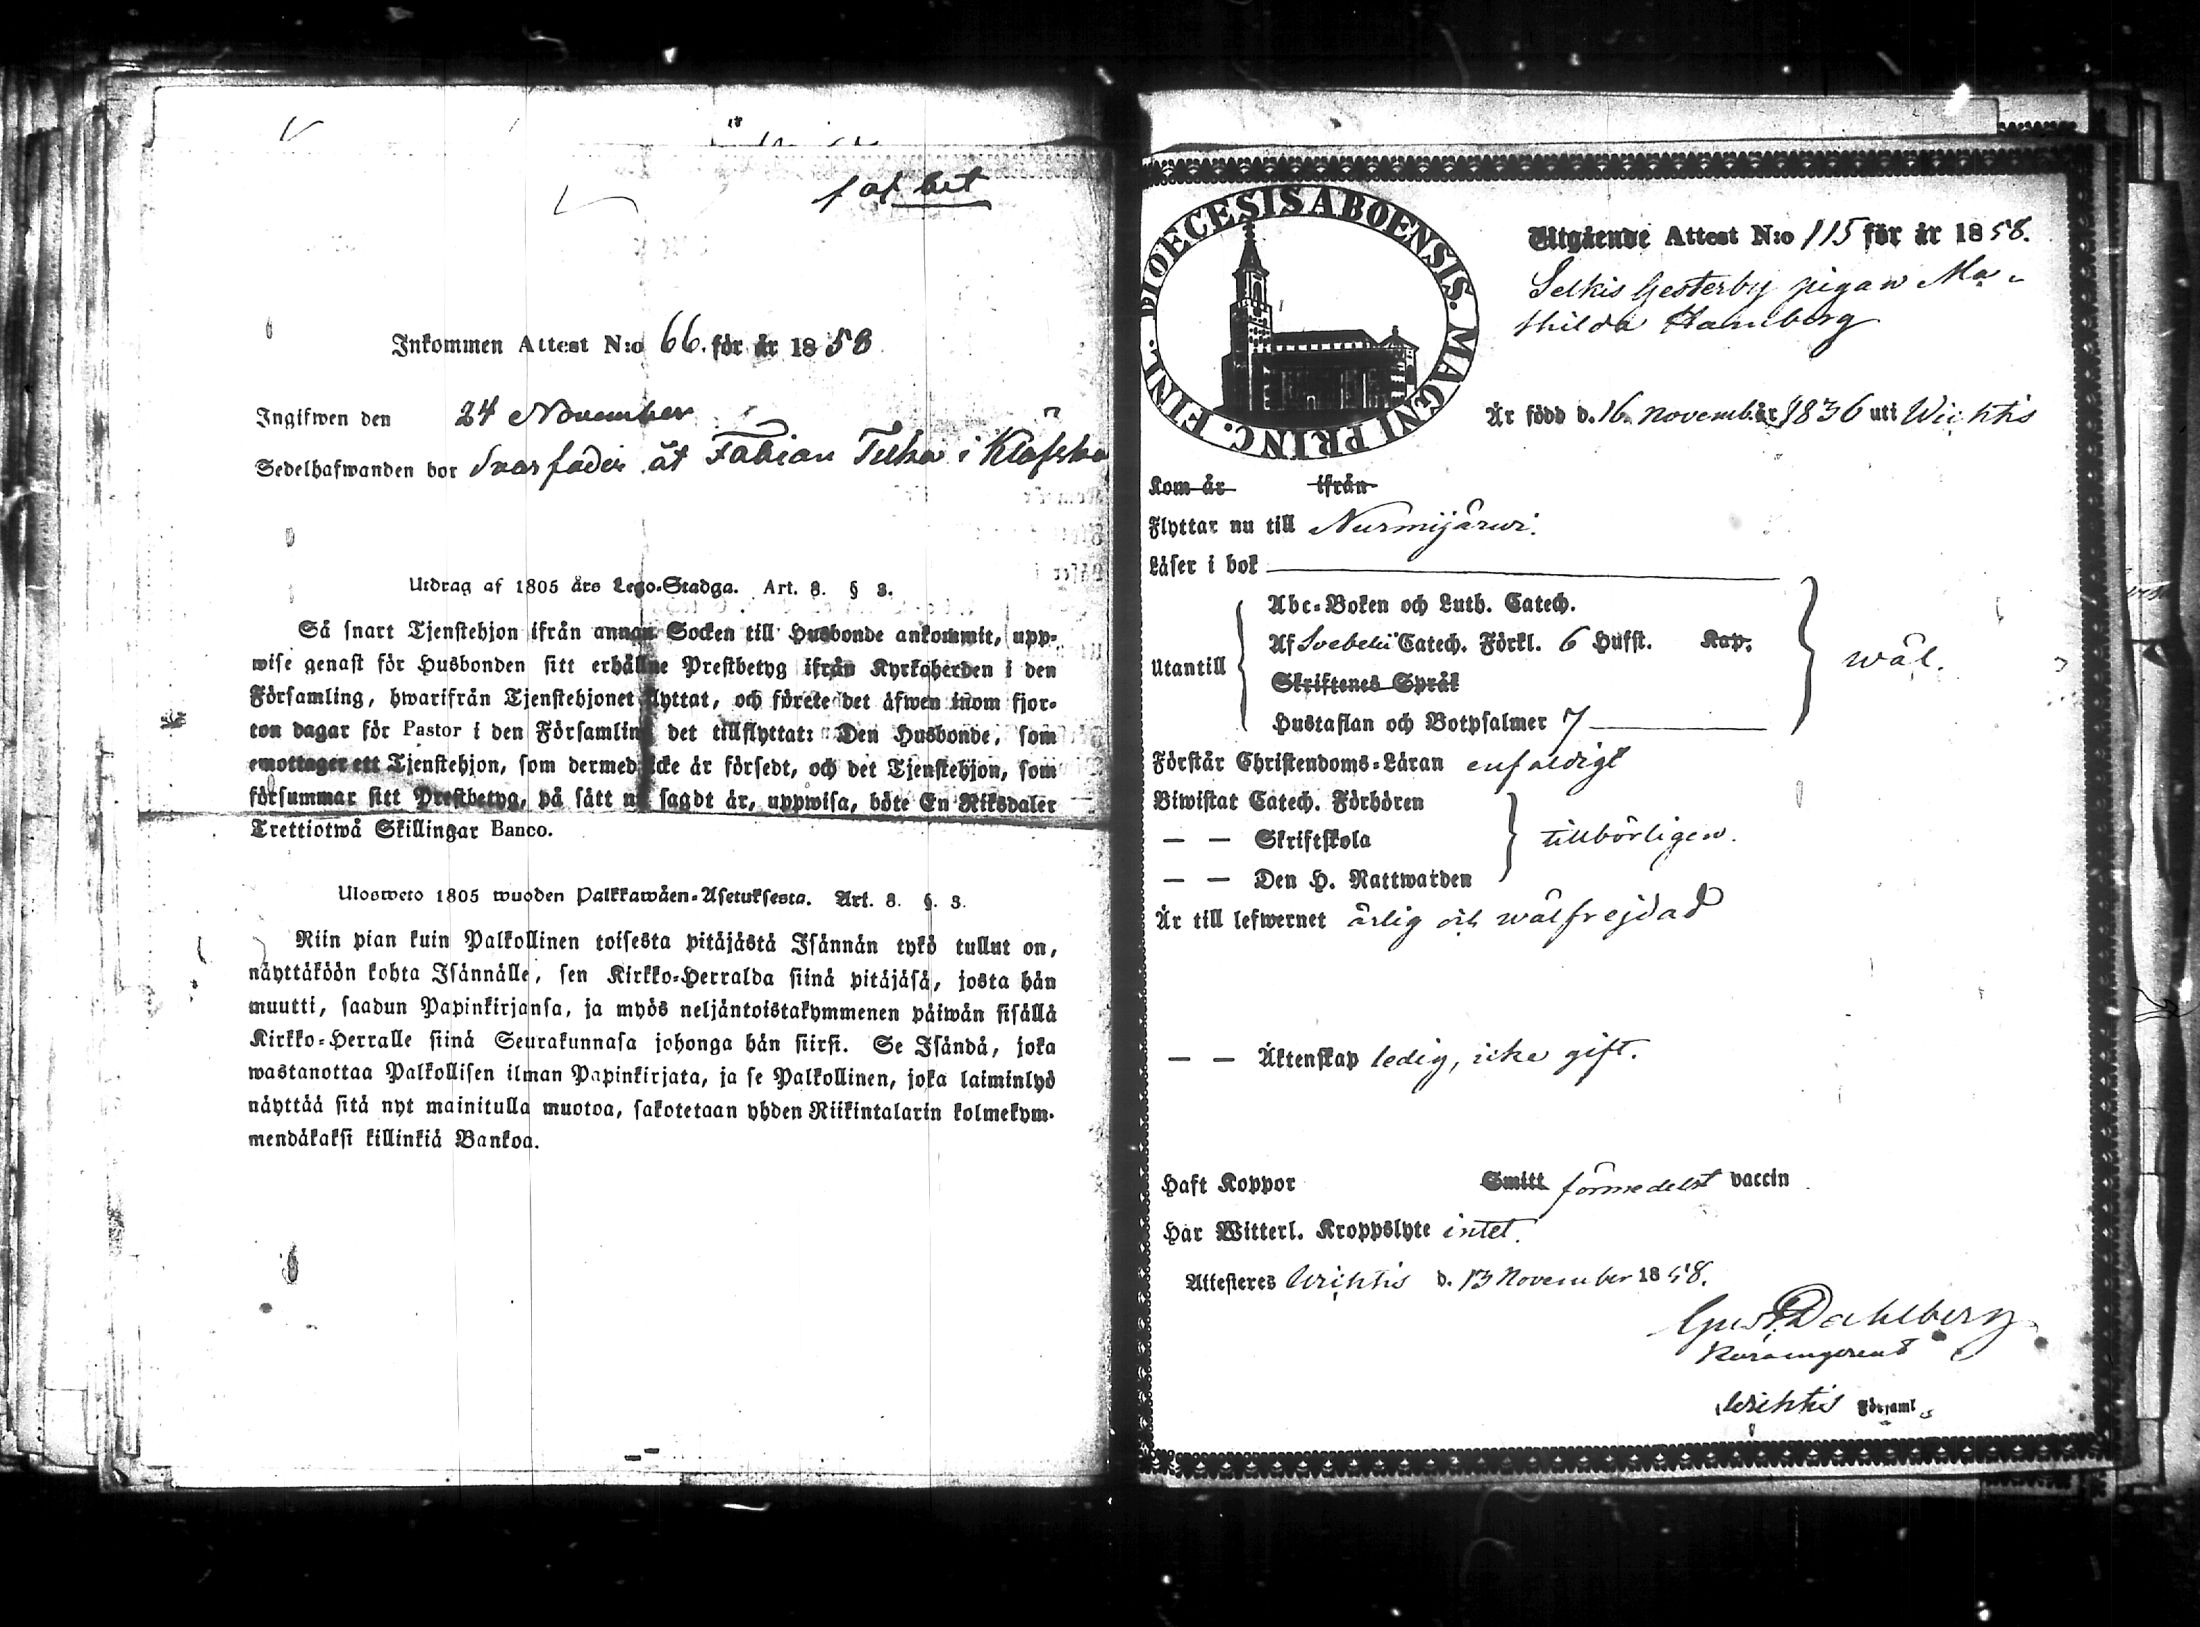 Inkommen Attest N:o 66. för år 1858
Ingifwen den 24 November
Sedelhafwanden bor Svarfader åt Fabian i
Utdrag af 1805 års Lego-Stadga. Art. 8. § 3.
Så snart Tjenstehjon ifrån annan Socken till Husbonde ankommit, upp-
wise genast för Husbonden sitt erhållne Prestbetyg ifrån Kyrkoherden i den
Församling, hwarifrån Tjenstehjonet flyttat, och förete det äfwen inom fjor-
ton dagar för Pastor i den Församling det tillflyttat: Den Husbonde, som
emottager ett Tjenstehjon, som dermed icke är försedt, och det Tjenstehjon, som
försummar sitt Prestbetyg, på sätt nu sagdt är, uppwisa, böte En Riksdaler
Trettiotwå Skillingar Banco.
Ulosweto 1805 wuoden Palkkawäen-Asetuksesta. Art. 8. §. 3.
Niin pian kuin Palkollinen toisesta pitäjästä Isännän tykö tullut on,
näyttäköön kohta Isännälle, sen Kirkko-Herralda siinä pitäjäsä, josta hän
muutti, saadun Papinkirjansa, ja myös neljäntoistakymmenen päiwän sisällä
Kirkko-Herralle siinä Seurakunnasa johonga hän siirsi. Se Isändä, joka
wastanottaa Palkollisen ilman Papinkirjata, ja se Palkollinen, joka laiminlyö
näyttää sitä nyt mainitulla muotoa, sakotetaan yhden Riikintalarin kolmekym-
mendäkaksi killinkiä Bankoa.
DIOECESIS ABOENSIS. MAGNI PRINC. FINL.
Utgående Attest N:o 115 för år 1858.
Selkis Gesterby pigan Ma-
thilda Hamberg
År född d. 16 November 1836 uti Wichtis
Kom år ifrån
Flyttar nu till Nurmijärwi.
Läser i bok
Utantill
Abc-Boken och Luth. Catech.
Af Svebelii Catech. Förkl. 6 Hufst. Kap.
Skriftenes Språk
Hustaflan och Botpsalmer 7
wäl.
Förstår Christendoms-Läran enfaldigt
Biwistat Catech. Förhören
— — Skriftskola
— — Den H. Nattwarden
tillbörligen.
Är till lefwernet ärlig och wälfrejdad
— — Äktenskap ledig, icke gift.
Haft Koppor Smitt förmedelst vaccin
Har Witterl. Kroppslyte intet.
Attesteres Wichtis d. 13 November 1858.
Gust. Dahlberg
Wichtis Församl.